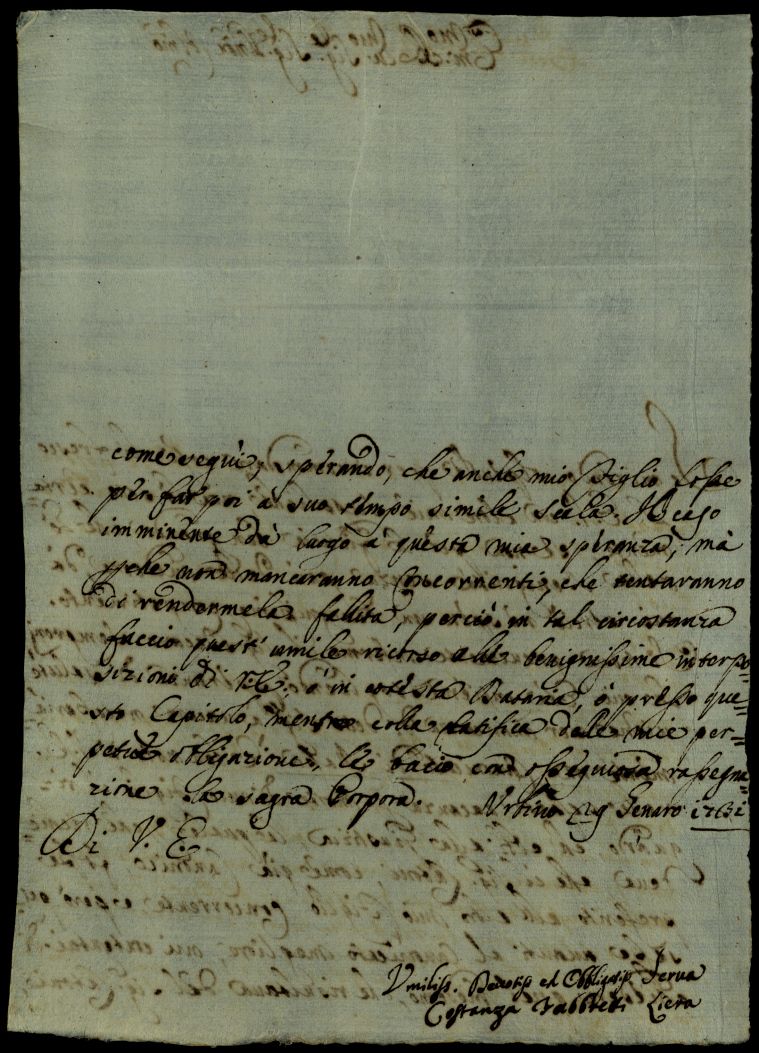 come seguì, sperando, che anche mio Figlio fosse
per far poi à suo tempo simile scala. Il caso
imminente dà luogo à questa mia speranza; mà
pche non mancaranno Concorrenti, che tentaranno
di rendermela fallita, perciò in tal circostanza
faccio quest' umile ricorso alle benignissime interpo=
sizioni di V.E. ò in cotesta Dataria, ò presso que=
sto Capitolo, mentre colla ratifica delle mie per=
petue obbligazioni, le bacio con ossequiosa rassegna=
zione la sagra Porpora. Urbino 29 Genaro 1731
Di V. E.
Umiliss. Devotiss ed Obbligatiss Serva
Costanza Fabbretti Liera